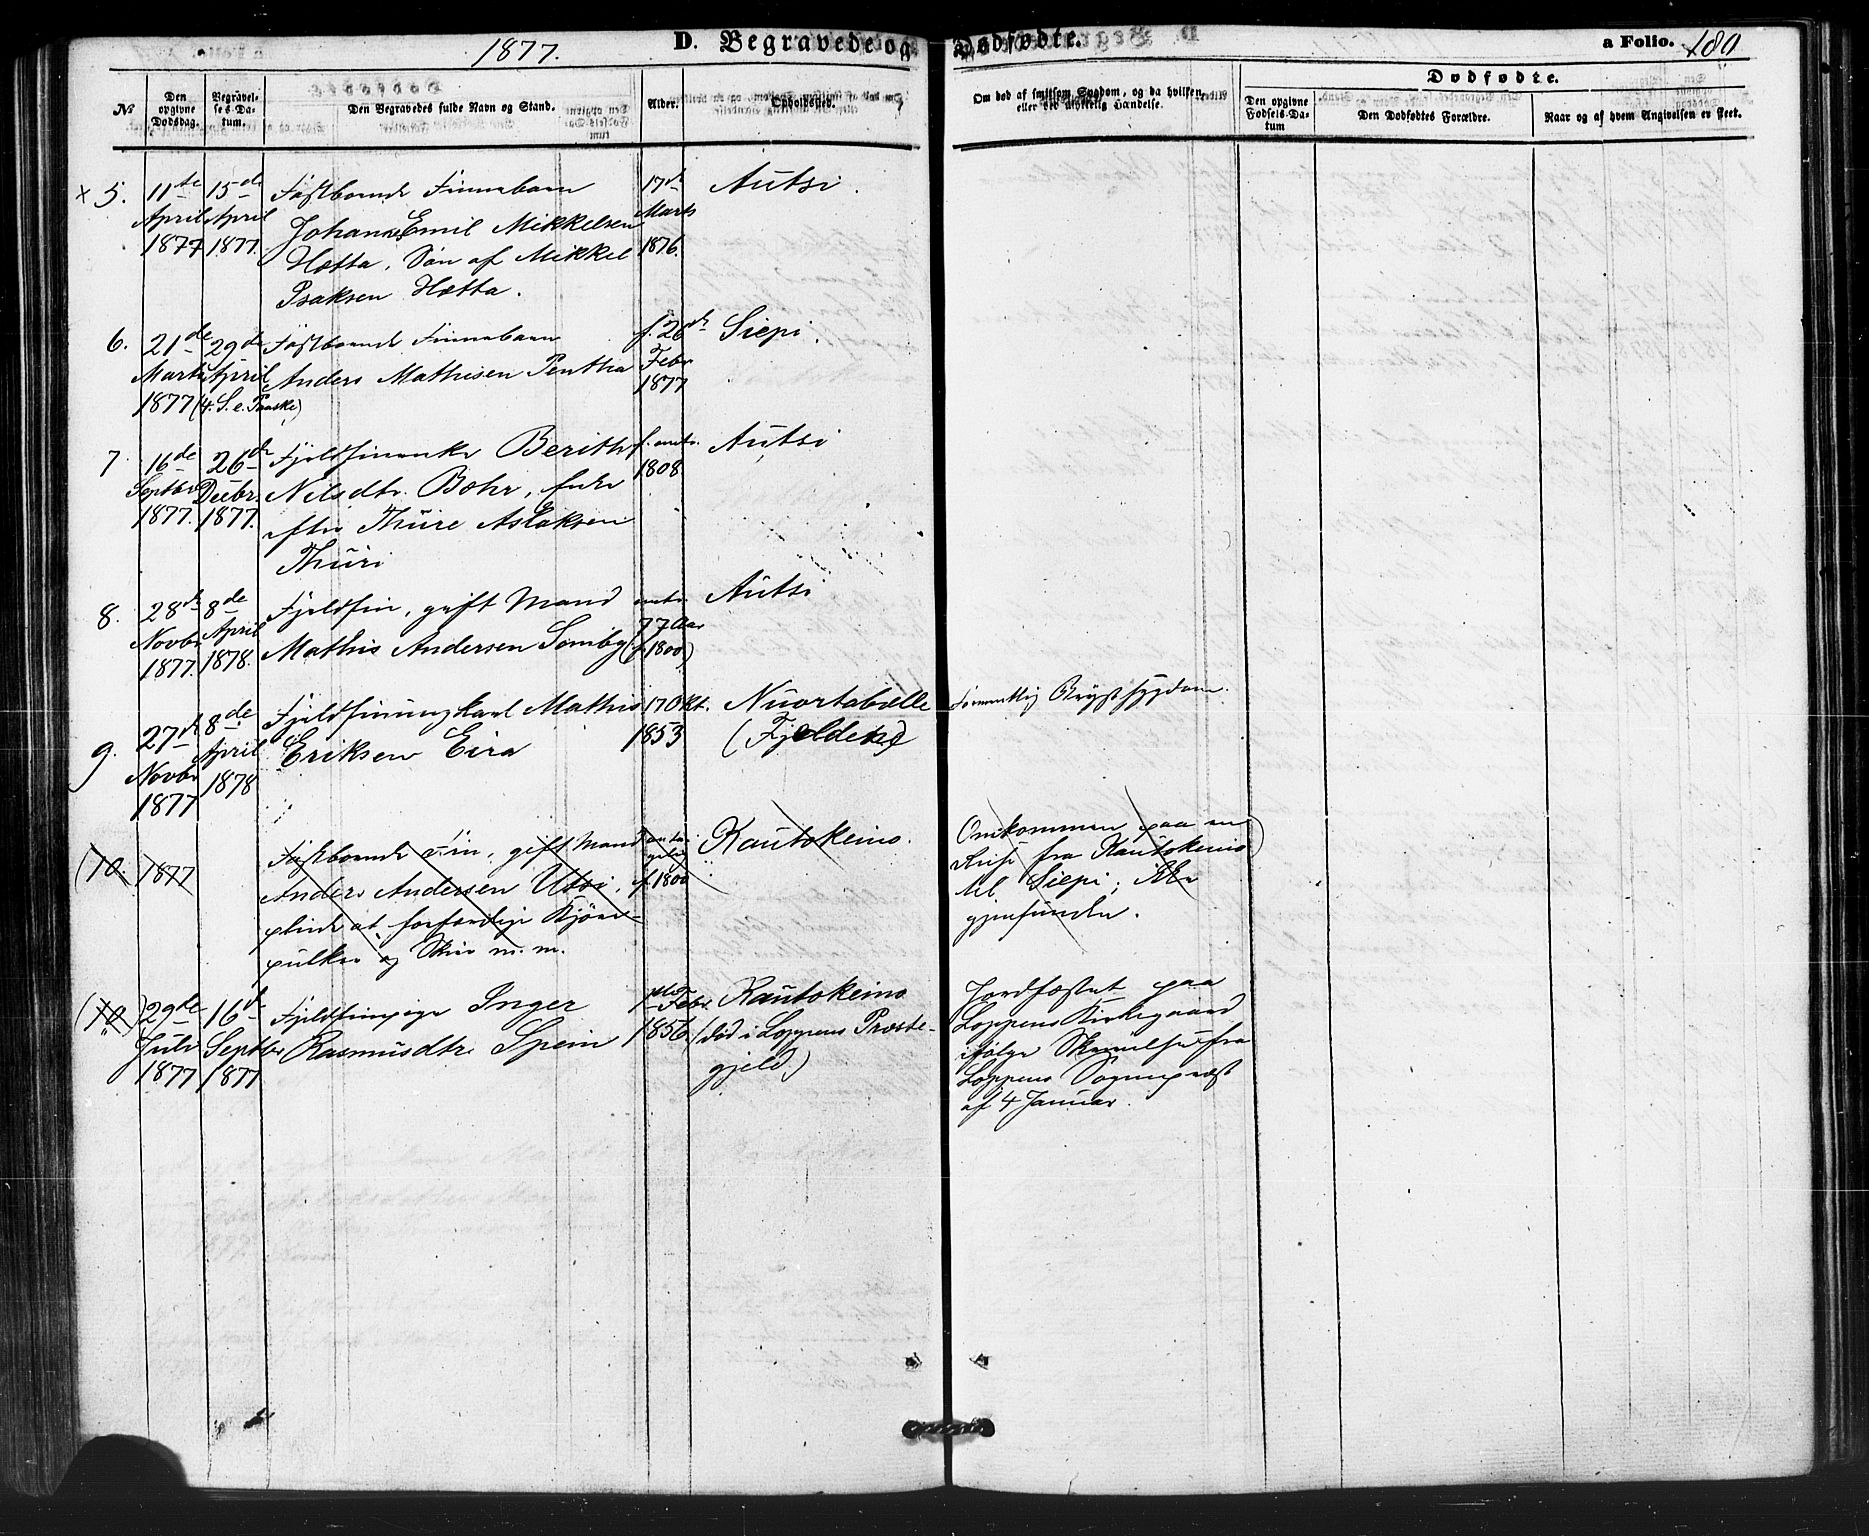 1877.
D. Begravede og Dødfødte.
a Folio. 180
№
Den opgivne Dødsdag.
Begravelses-Datum.
Den Begravedes fulde Navn og Stand.
Alder.
Opholdssted.
Om død af smitsom Sygdom, og da hvilken, eller ved ulykkelig Hændelse.
Dødfødte.
Den opgivne Fødsels-Datum
Den Dødfødtes Forældre.
Naar og af hvem Angivelsen er skeet.
× 5.
11te April 1877
15de April 1877.
Fastboende Finnebarn
Johannes Emil Mikkelsen
Hætta, Søn af Mikkel
Isaksen Hætta.
17de Marts 1876.
Autsi.
6.
21de Marts 1877
29de April (4. S. e. Paaske)
Fastboende Finnebarn
Anders Mathisen Pentha
f. 26de Febr 1877
Siepi.
7.
16de Septbr 1877.
26de Decbr. 1877.
Fjeldfinenke Berith
Nilsdtr. Bohr, Enke
efter Thure Aslaksen
Thuri
f. omtr. 1808.
Autsi
8.
28de Novbr 1877.
8de April 1878.
Fjeldfin, gift Mand
Mathis Andersen Somby
omtr. 77 Aar (f. 1800)
Autsi
9.
27de Novbr 1877
8de April 1878
Fjeldfinungkarl Mathis
Eriksen Eira
17 Okt. 1853
Nuortabelle
(Fjeldet)
Brystsygdom.
(10.
1877
Fastboende Fin, gift Mand
Anders Andersen Utsi,
pleiede at forfærdige Kjøre-
pulker og Skier m. m.
f. 1800
Kautokeino.
Omkommen paa en
Reise fra Kautokeino
til Siepi; ikke
gjenfunden.
(10)
29de Juli 1877
16de Septbr 1877
Fjeldfinpige Inger
Rasmusdtr. Spein
1ste Febr. 1856.
Kautokeino
(død i Loppens Præste-
gjeld)
Jordfæstet paa
Loppens Kirkegaard
ifølge Skrivelse fra
Loppens Sogneprest
af 4 Januar.